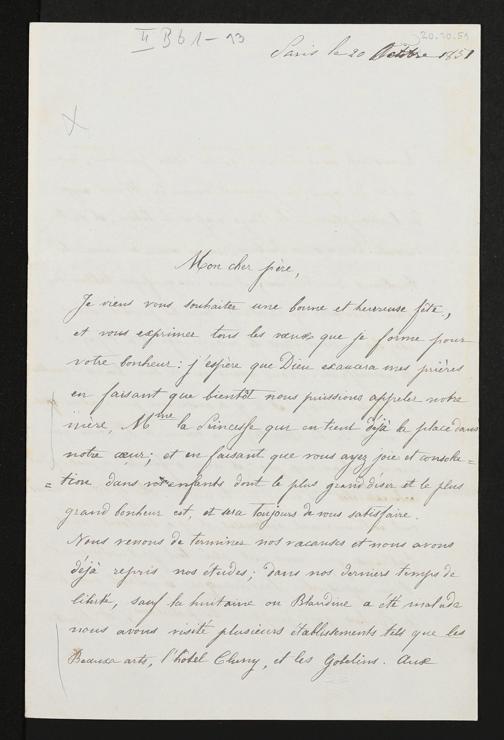 II B b 1-13
20.10.51
Paris le 20 Octobre 1851
Mon cher père,
Je viens vous souhaiter une bonne et heureuse fête,
et vous exprimer tous les vœux que je forme pour
votre bonheur : j'espère que Dieu exaucera mes prières
en faisant que bientôt nous puissions appeler notre
mère, Mme la Princesse qui en tient déjà la place dans
notre cœur ; et en faisant que vous ayez joie et consola-
= tion dans vos enfants dont le plus grand désir et le plus
grand bonheur est, et sera toujours de vous satisfaire.
Nous venons de terminer nos vacances et nous avons
déjà repris nos études ; dans nos derniers temps de
liberté, sauf la huitaine ou Blandine a été malade
nous avons visité plusieurs établissements tels que les
Beaux arts, l'hôtel Cluny, et les Gobelins. Aux